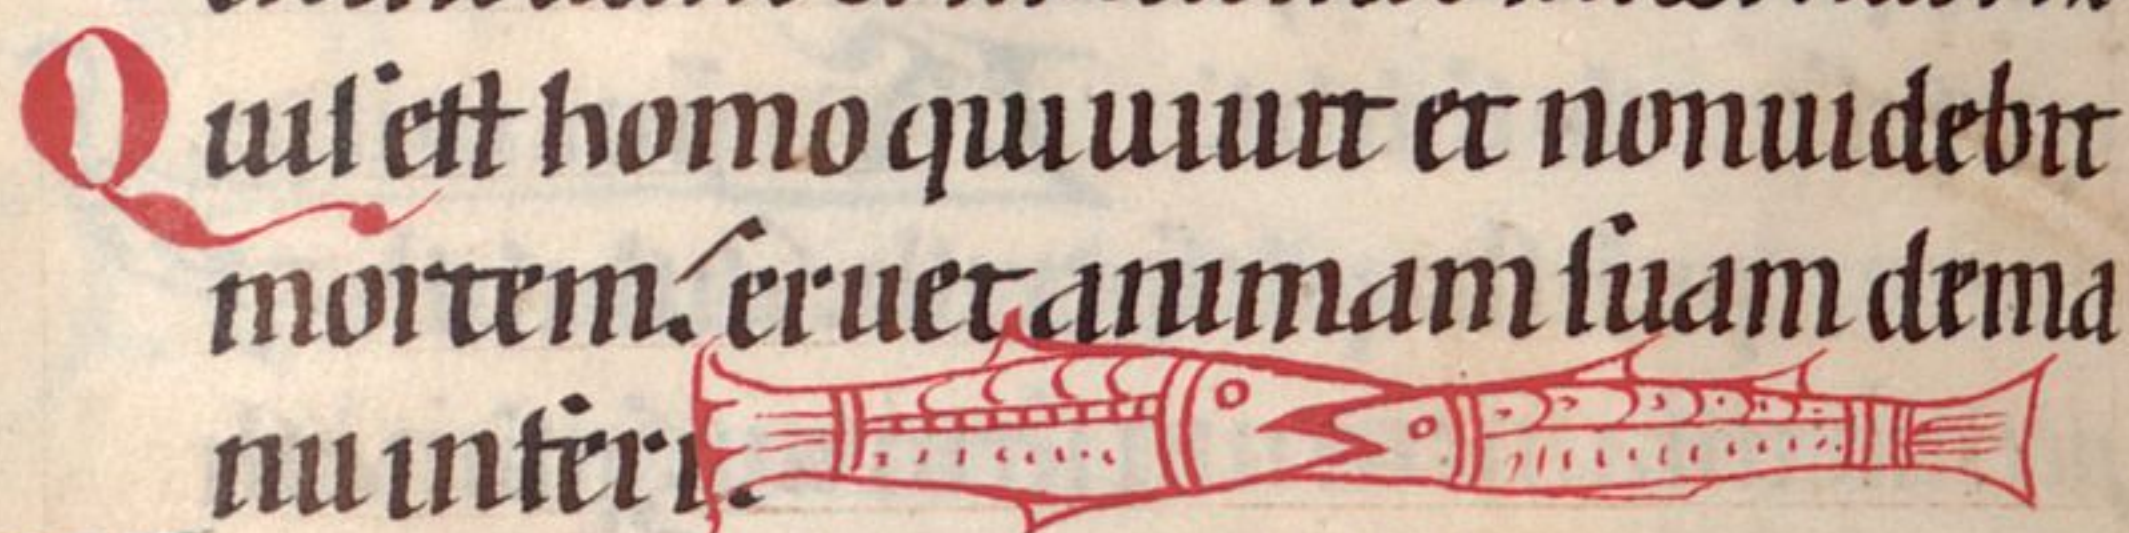 Quis est homo qui uiuit et non uidebit
mortem. eruet animam suam de ma
nu inferi.